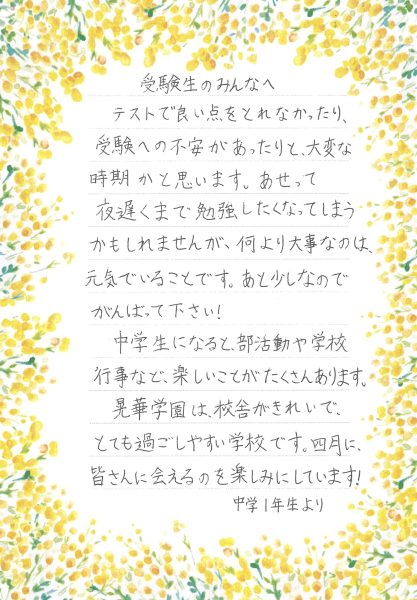 受験生のみんなへ
テストで良い点をとれなかったり、
受験への不安があったりと、大変な
時期かと思います。あせって
夜遅くまで勉強したくなってしまう
かもしれませんが、何より大事なのは、
元気でいることです。あと少しなので
がんばって下さい!
中学生になると、部活動や学校
行事など、楽しいことがたくさんあります。
晃華学園は、校舎がきれいで、
とても過ごしやすい学校です。四月に、
皆さんに会えるのを楽しみにしています!
中学1年生より